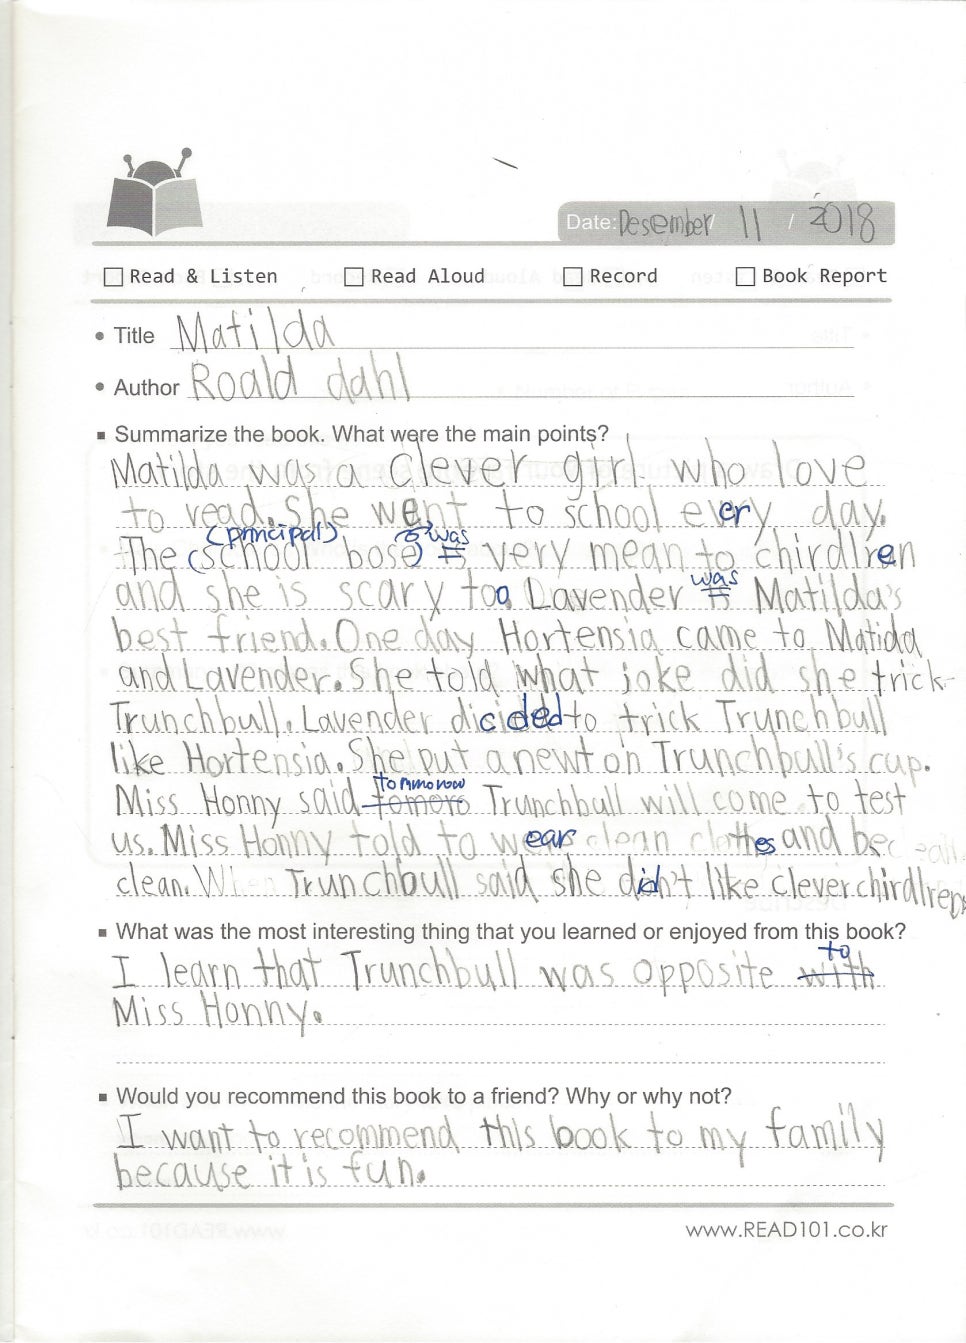 Date: Desember / 11 / 2018
Read & Listen Read Aloud Record Book Report
• Title Matilda
• Author Roald dahl
▪ Summarize the book. What were the main points?
Matilda was a clever girl who love
to read. She went to school every day.
(principal) was
The (school bose) is very mean to chirdlren
was
and she is scary too. Lavender is Matilda's
best friend. One day Hortensia came to Matida
and Lavender. She told what joke did she trick
Trunchbull. Lavender dicided to trick Trunchbull
like Hortensia. She put a newt on Trunchbull's cup.
tommorow
Miss Honny said tomoro Trunchbull will come to test
us. Miss Honny told to wear clean clothes and be
clean. When Trunchbull said she didn't like clever chirdlren
▪ What was the most interesting thing that you learned or enjoyed from this book?
to
I learn that Trunchbull was opposite with
Miss Honny.
▪ Would you recommend this book to a friend? Why or why not?
I want to recommend this book to my family
because it is fun.
www.READ101.co.kr